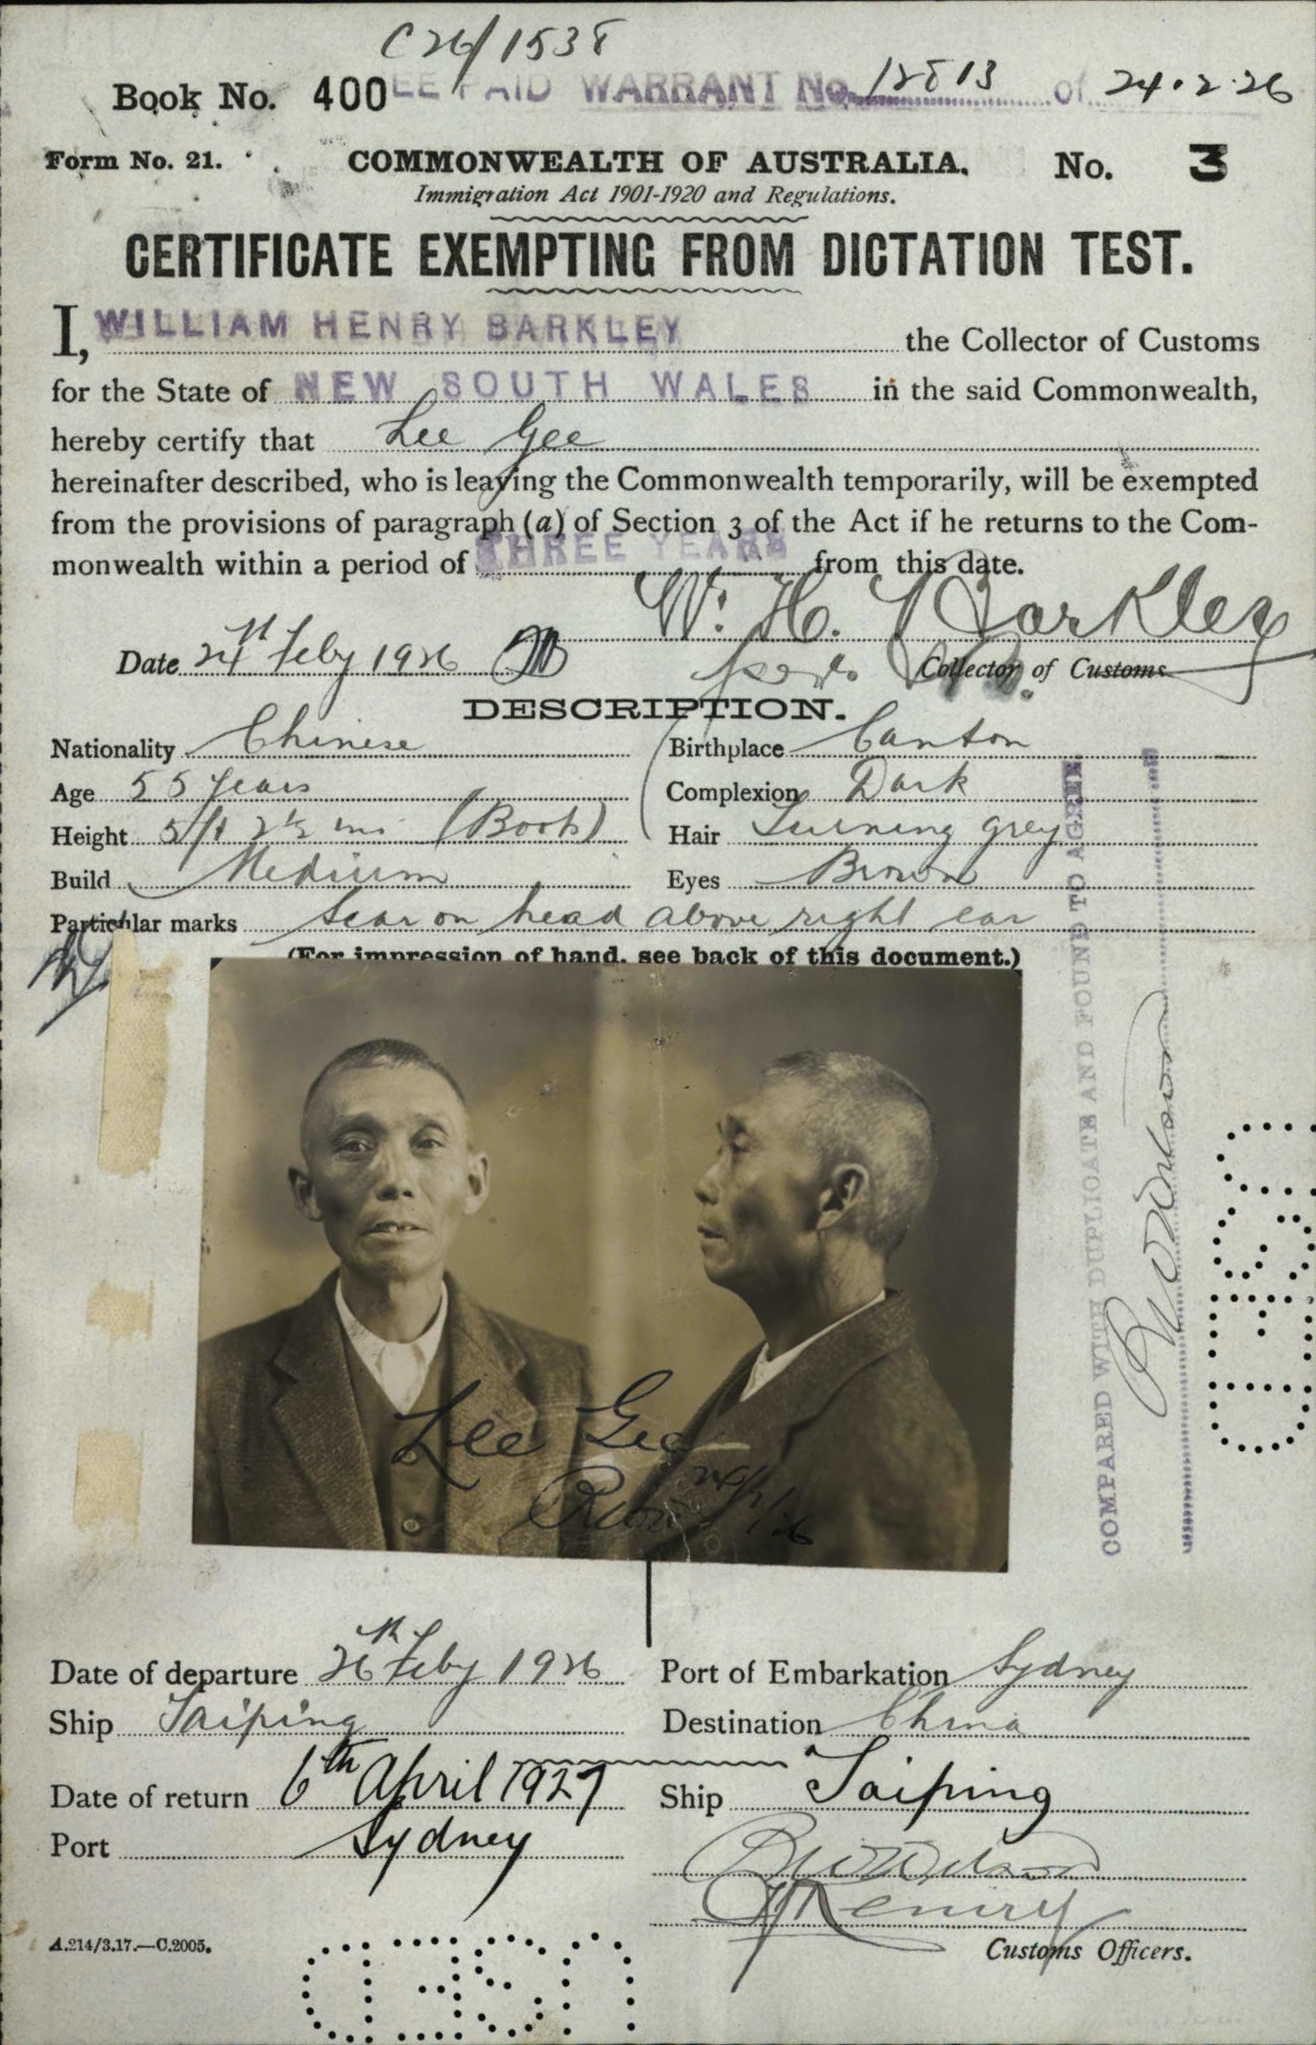 C26/1538
Book No. 400 EE PAID WARRANT No. 12813 of 24.2.26
Form No. 21. COMMONWEALTH OF AUSTRALIA. No. 3
Immigration Act 1901-1920 and Regulations.
CERTIFICATE EXEMPTING FROM DICTATION TEST.
I, WILLIAM HENRY BARKLEY the Collector of Customs
for the State of NEW SOUTH WALES in the said Commonwealth,
hereby certify that Lee Gee
hereinafter described, who is leaving the Commonwealth temporarily, will be exempted
from the provisions of paragraph (a) of Section 3 of the Act if he returns to the Com-
monwealth within a period of THREE YEARS from this date.
W. H. Barkley
Date 24th Feby 1926 Collector of Customs
DESCRIPTION.
Nationality Chinese Birthplace Canton
Age 55 years Complexion Dark
Height 5ft 2½ ins (Boots) Hair Turning grey
Build Medium Eyes Brown
Particular marks Scar on head above right ear
(For impression of hand, see back of this document.)
COMPARED WITH DUPLICATE AND FOUND TO AGREE
Lee Gee
24/2/26
Date of departure 26th Feby 1926 Port of Embarkation Sydney
Ship Taiping Destination China
Date of return 6th April 1927 Ship Taiping
Port Sydney
A.214/3.17.—C.2005. Customs Officers.